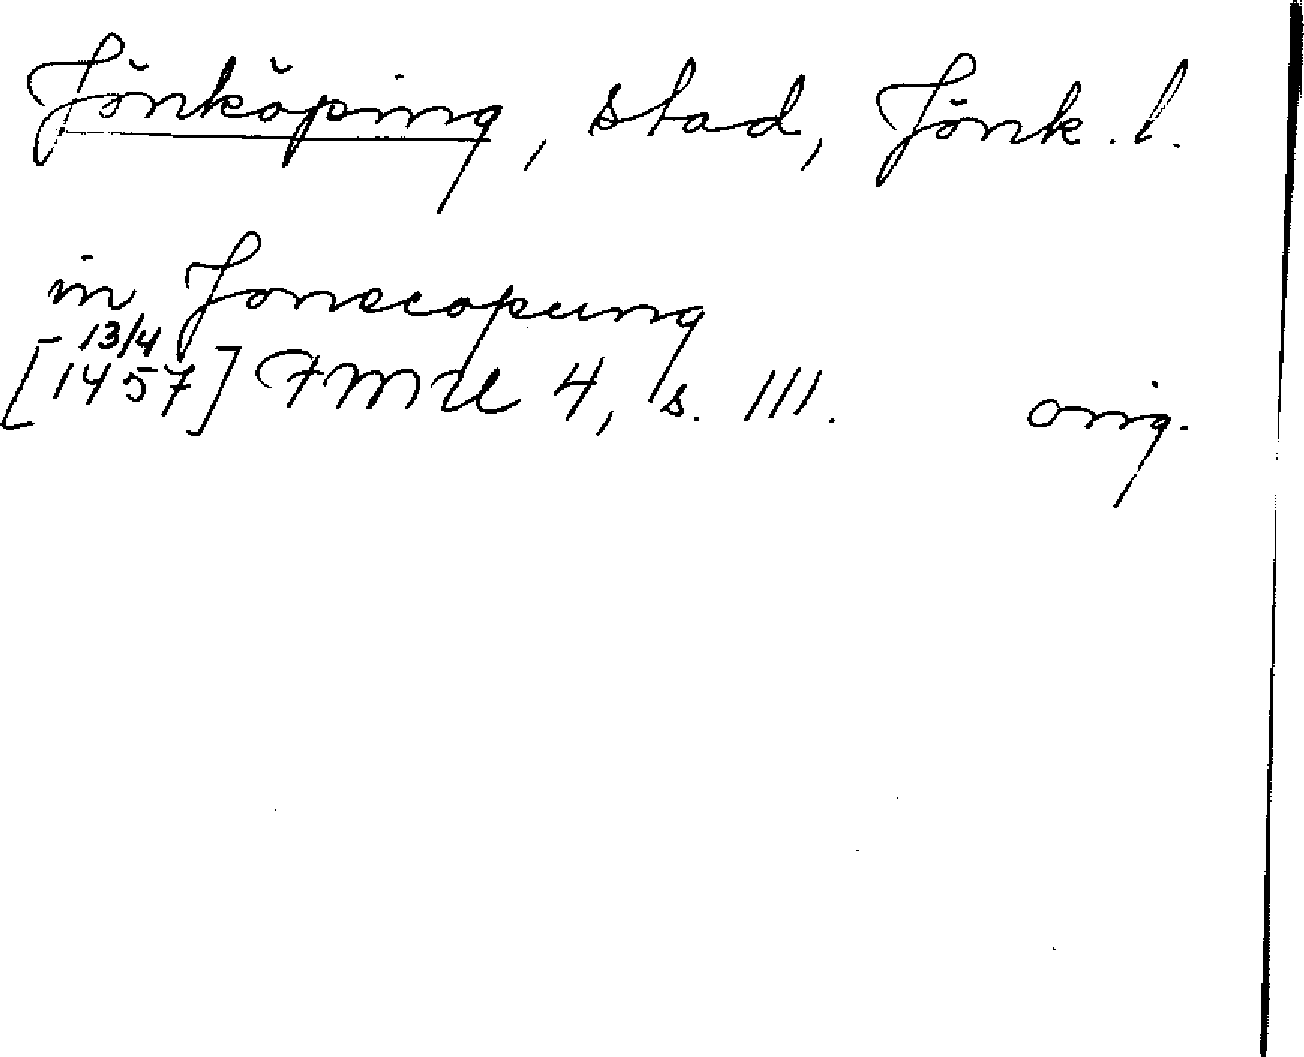 Jönköping, stad, Jönk. l.
in Jonecopung
[13/4 1457] FMU 4, s. 111. orig.